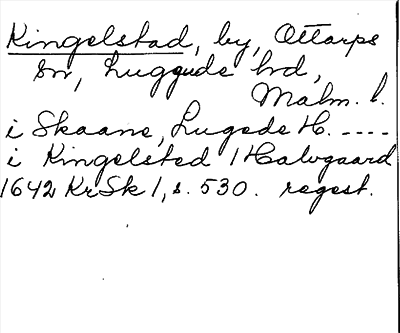 Kingelstad, by, Ottarps
sn, Luggude hd,
Malm. l.
i Skaane, Lugede H. ----
i Kingelsted 1 Halvgaard
1642 KrSk 1, s. 530. regest.